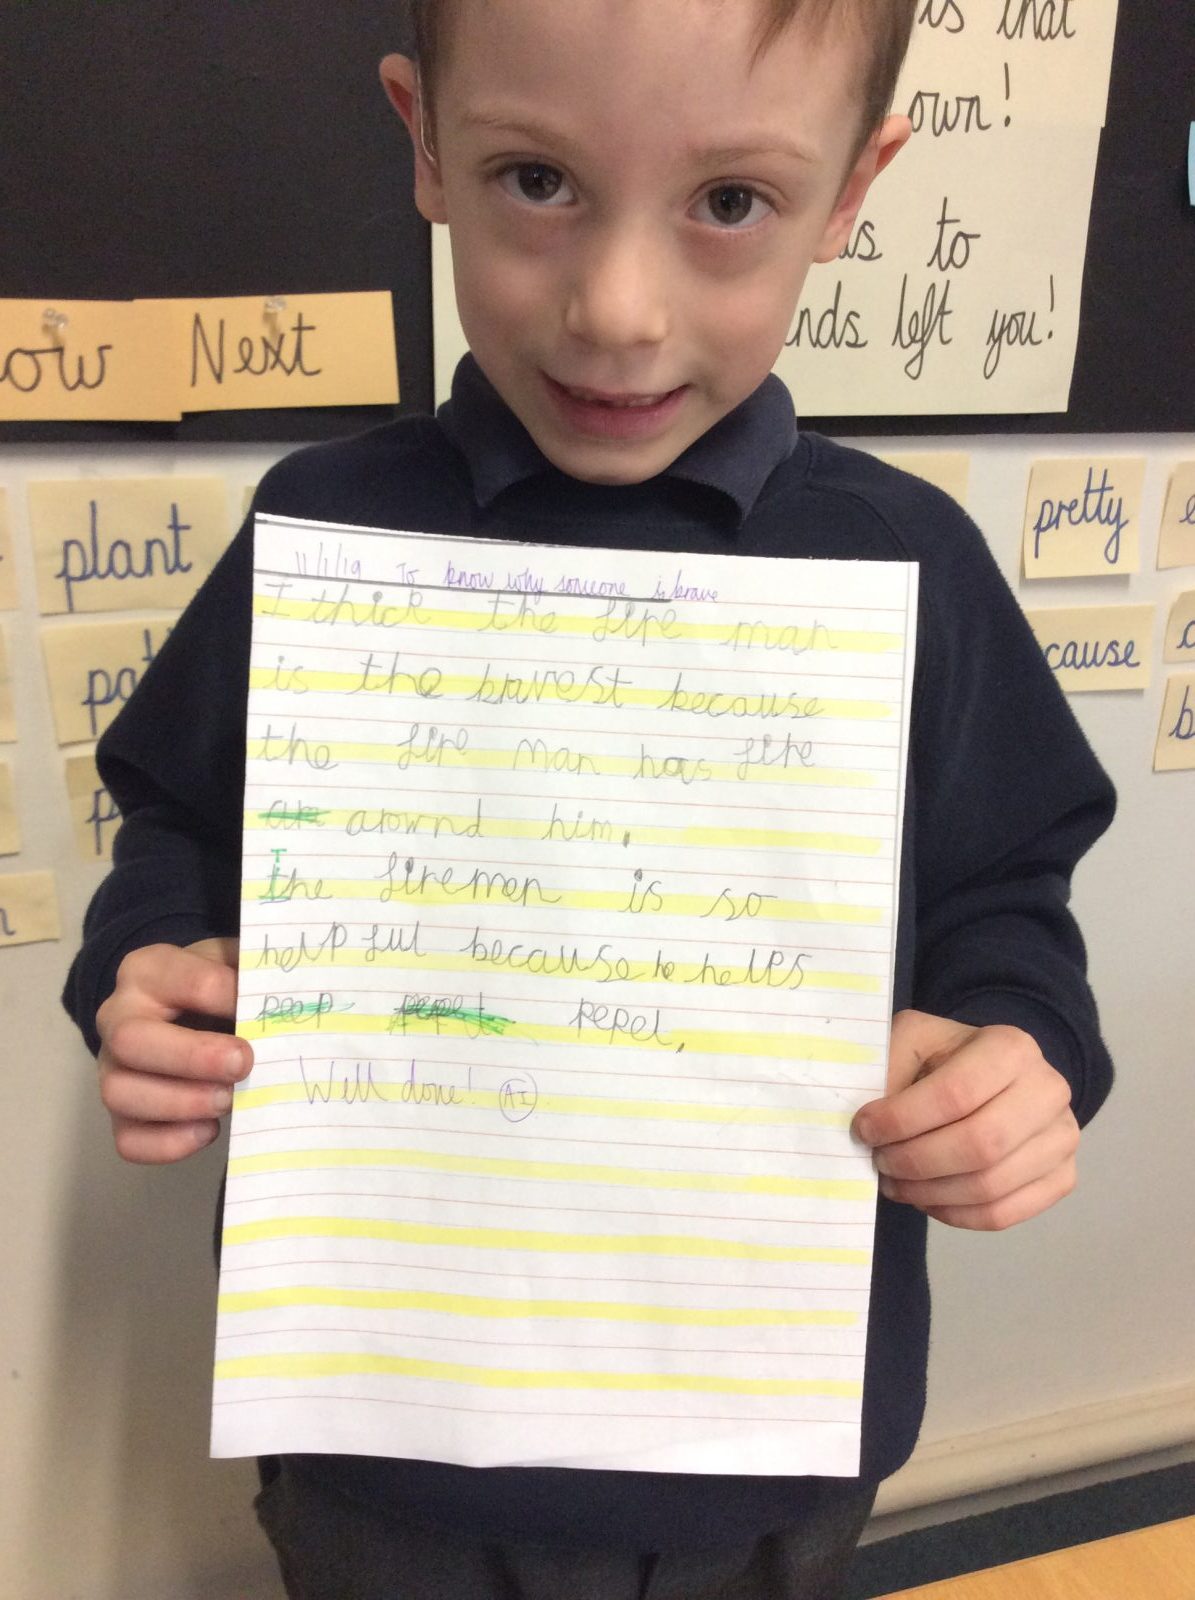 is that
own!
to
left you!
Next
plant
pretty
cause
11/1/19 To know why someone is brave
I thick the fire man
is the bravest because
the fire man has fire
arownd him.
The fireman is so
helpful because he helps
pepel.
Well done! AI